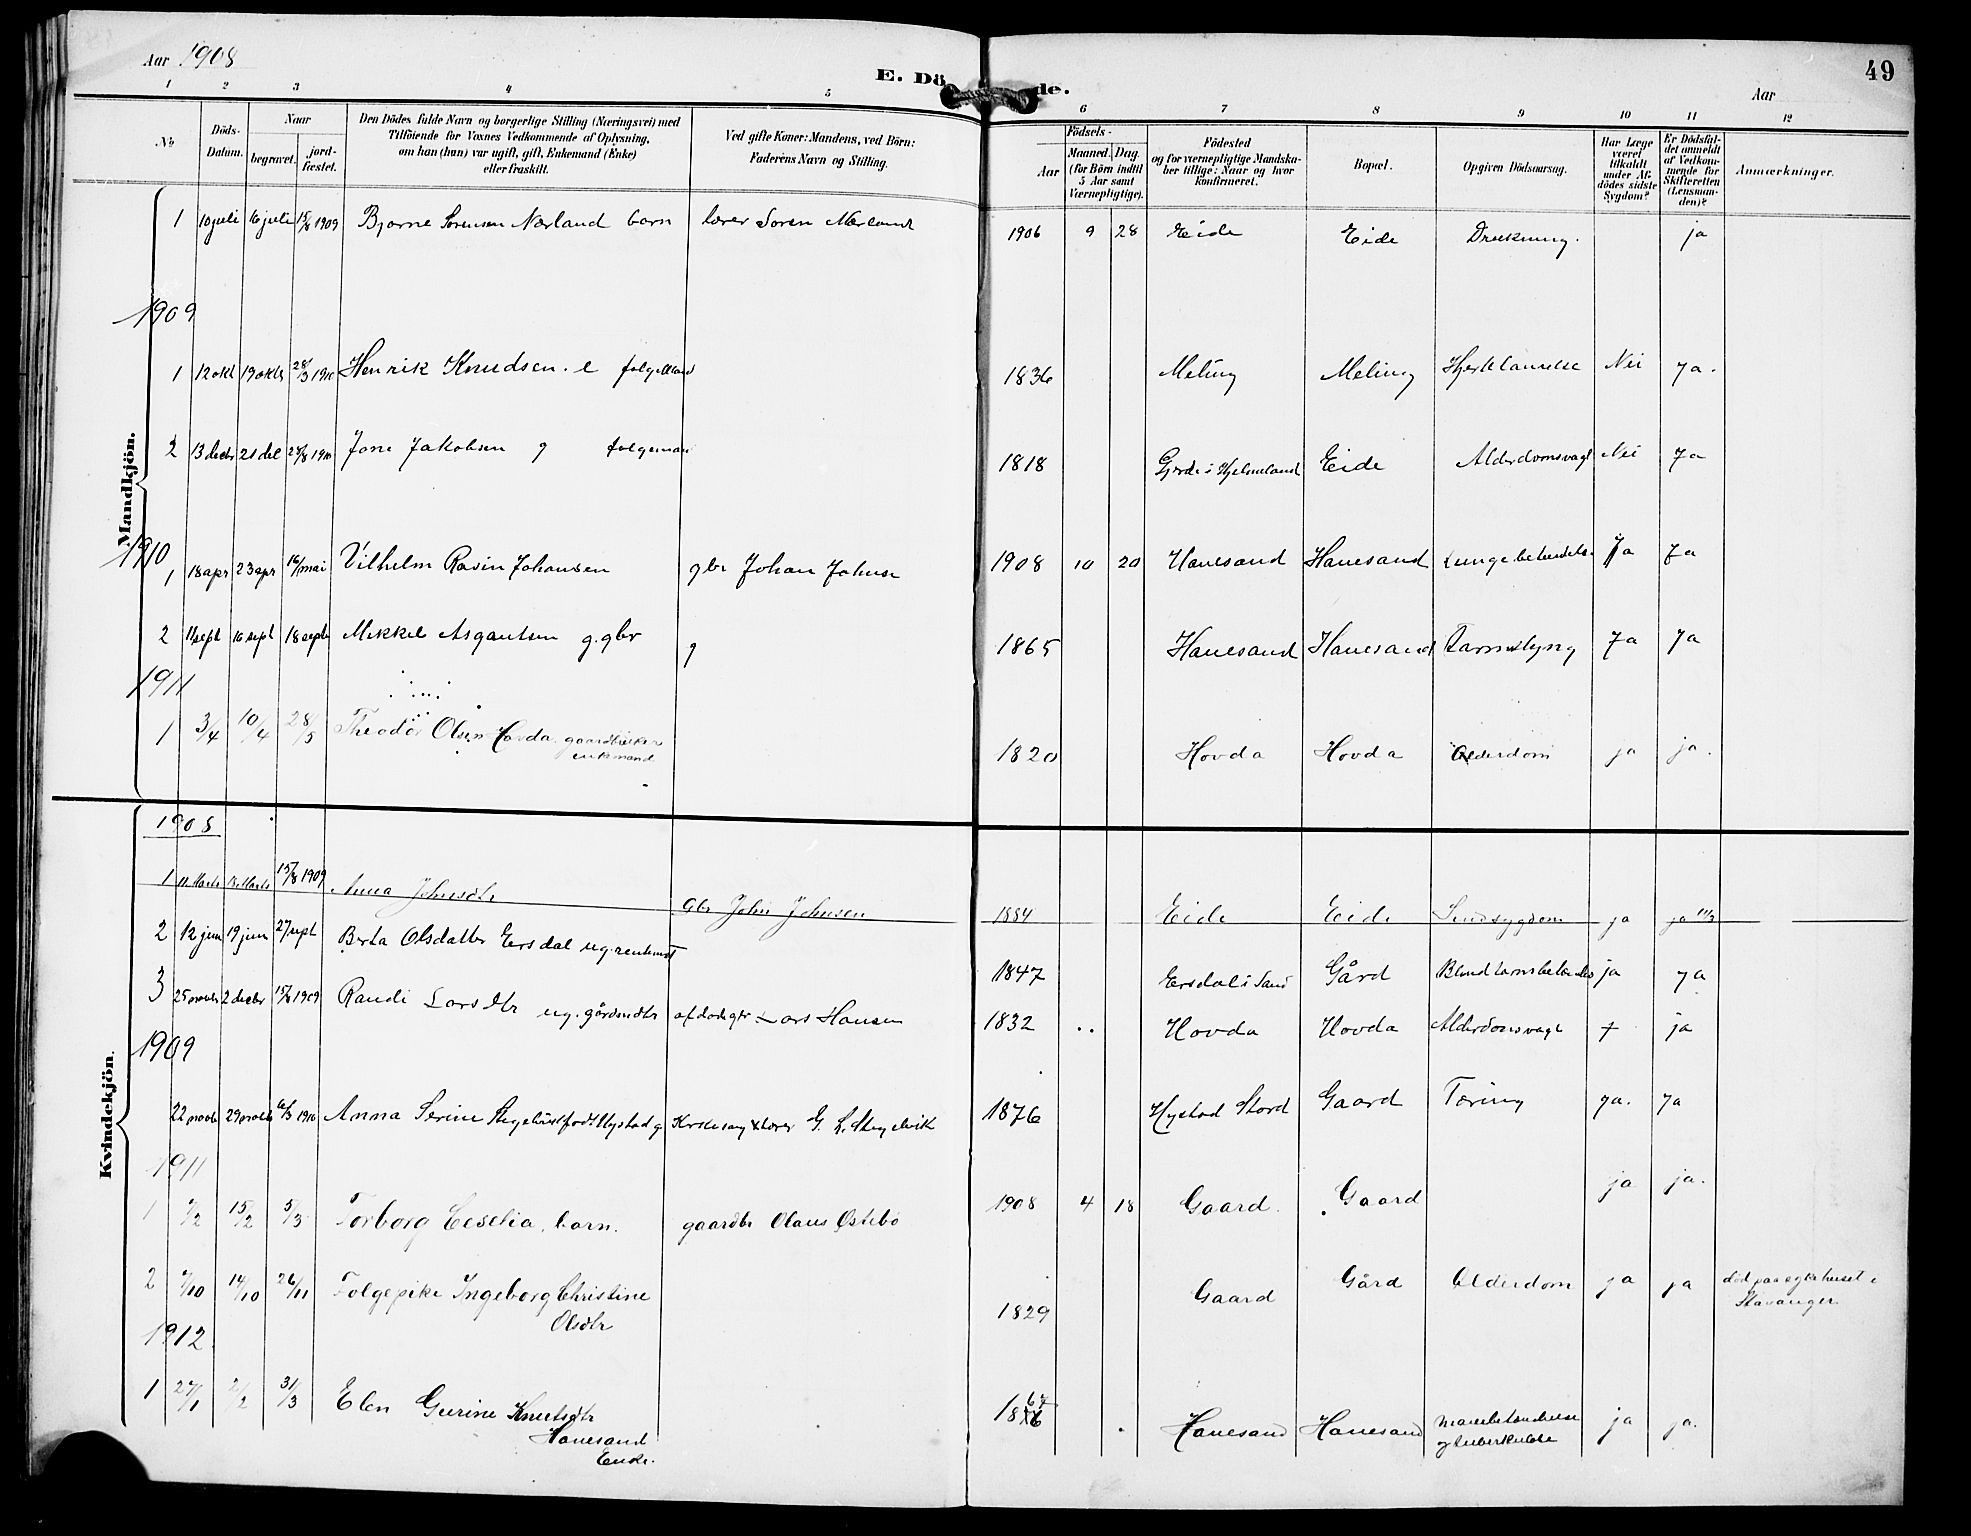 Aar 1908
E. Dö de.
Aar
49
1 2 3 4 5 6 7 8 9 10 11 12
No
Döds-Datum.
Naar
begravet.
jord-fæstet.
Den Dödes fulde Navn og borgerlige Stilling (Næringsvei) med
Tilföiende for Voxnes Vedkommende af Oplysning,
om han (hun) var ugift, gift, Enkemand (Enke)
eller fraskilt.
Ved gifte Koner: Mandens, ved Börn:
Faderens Navn og Stilling.
Födsels-
Aar
Maaned. Dag.
(for Börn indtil
5 Aar samt
Værnepligtige).
Födested
og for værnepligtige Mandska-
ber tillige: Naar og hvor
konfirmeret.
Bopæl.
Opgiven Dödsaarsag.
Har Læge
været
tilkaldt
under Af-
dödes sidste
Sygdom?
Er Dödsfal-
det anmeldt
af Vedkom-
mende for
Skifteretten
(Lensman-
den)?
Anmærkninger.
Mandkjön.
1 10 juli 16 juli 15/8 1909 Bjarne Sörensen Nærland barn lærer Sören Nærland 1906 9 28 Eide Eide Drukning. ja
1909
1 12 okt 19 oktr 28/3 1910 Henrik Knudsen. e folgemand 1836 Meling Meling Hjertelammelse Nei ja.
2 13 decbr 21 dec 1910 Jone Jakobsen g folgeman 1818 Gjerde i Hjelmeland Eide Alderdomsvagt Nei Ja
1910
1 18 apr 23 apr 16/mai Vilhelm Ravin Johansen gbr Johan Johnsen 1908 10 20 Hanesand Hanesand Lungebetendelse Ja Ja
2 11 sept 16 sept 18 septr Mikkel Asgautsen g. gbr g 1865 Hanesand Hanesand Tarmslyng Ja Ja
1911
1 3/4 10/4 28/5 Theodor Olsen Hovda. gaardbruker
enkmand 1820 Hovda Hovda Alderdom ja ja.
Kvindekjön.
1908
1 11 Marts 18 Marts 15/8 1909 Anna Johnsdtr Gbr John Johnsen 1884 Eide Eide Sindsygdom ja ja 11/3
2 12 juni 19 juni 27 sept Berta Olsdatter Eersdal ug. 1847 Eersdal i Sand Gård Blindtarmsbetændelse ja ja
3 25 novbr 2 decbr 15/8 1909 Randi Larsdtr ug. gårdmdtr afdöde gbr Lars Hansen 1832 Hovda Hovda Alderdomsvagt + ja
1909
22 novbr 29 novbr 6/3 1910 Anna Serine Stegelvik födt Hystad g Kirkesang & lærer G. L. Stegelvik 1876 Hystad Stord Gaard Tæring ja. ja
1911
1 15/2 5/3 Torborg Ceselia, barn. gaardbr Olaus Östebö 1908 4 18 Gaard. Gaard ja ja.
2 7/10 14/10 26/11 Folgepike Ingeborg Christine
Olsdtr 1829 Gaard Gård Alderdom ja ja död paa sykehuset i
Stavanger.
1912.
1 27/1 2/2 31/3 Elen Gurine Knutsdtr
Hanesand
Enke. 1867 Hanesand Hanesand
og tuberkulose ja ja.